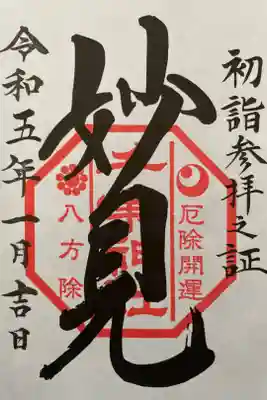 初詣参拝之証
妙見
厄除開運
八方除
令和五年一月吉日